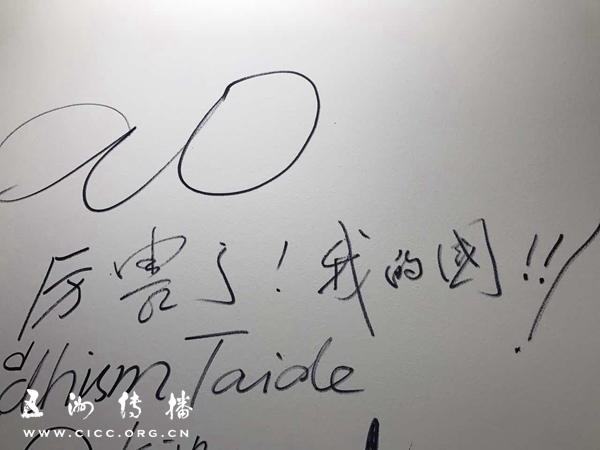 厉害了！我的國!!!
dhism Taide
五洲传播
WWW.CICC.ORG.CN